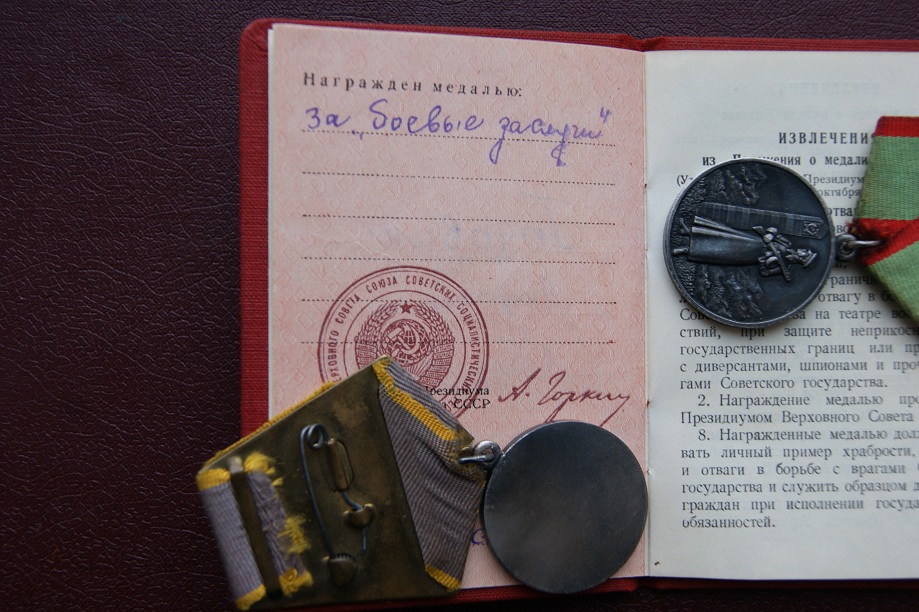 Награжден медалью:
за „боевые заслуги"
ВЕРХОВНОГО СОВЕТА СОЮЗА СОВЕТСКИХ СОЦИАЛИСТИЧЕСКИХ
Президиума
СССР
А. Горкин
ИЗВЛЕЧЕНИ
из о медали
Президиум
октября
отва
отвагу в б
на театре
ствий, при защите неприкос
государственных границ или пр
с диверсантами, шпионами и проч
гами Советского государства.
2. Награждение медалью про
Президиумом Верховного Совета
8. Награжденные медалью долж
вать личный пример храбрости,
и отваги в борьбе с врагами
государства и служить образцом д
граждан при исполнении госуда
обязанностей.